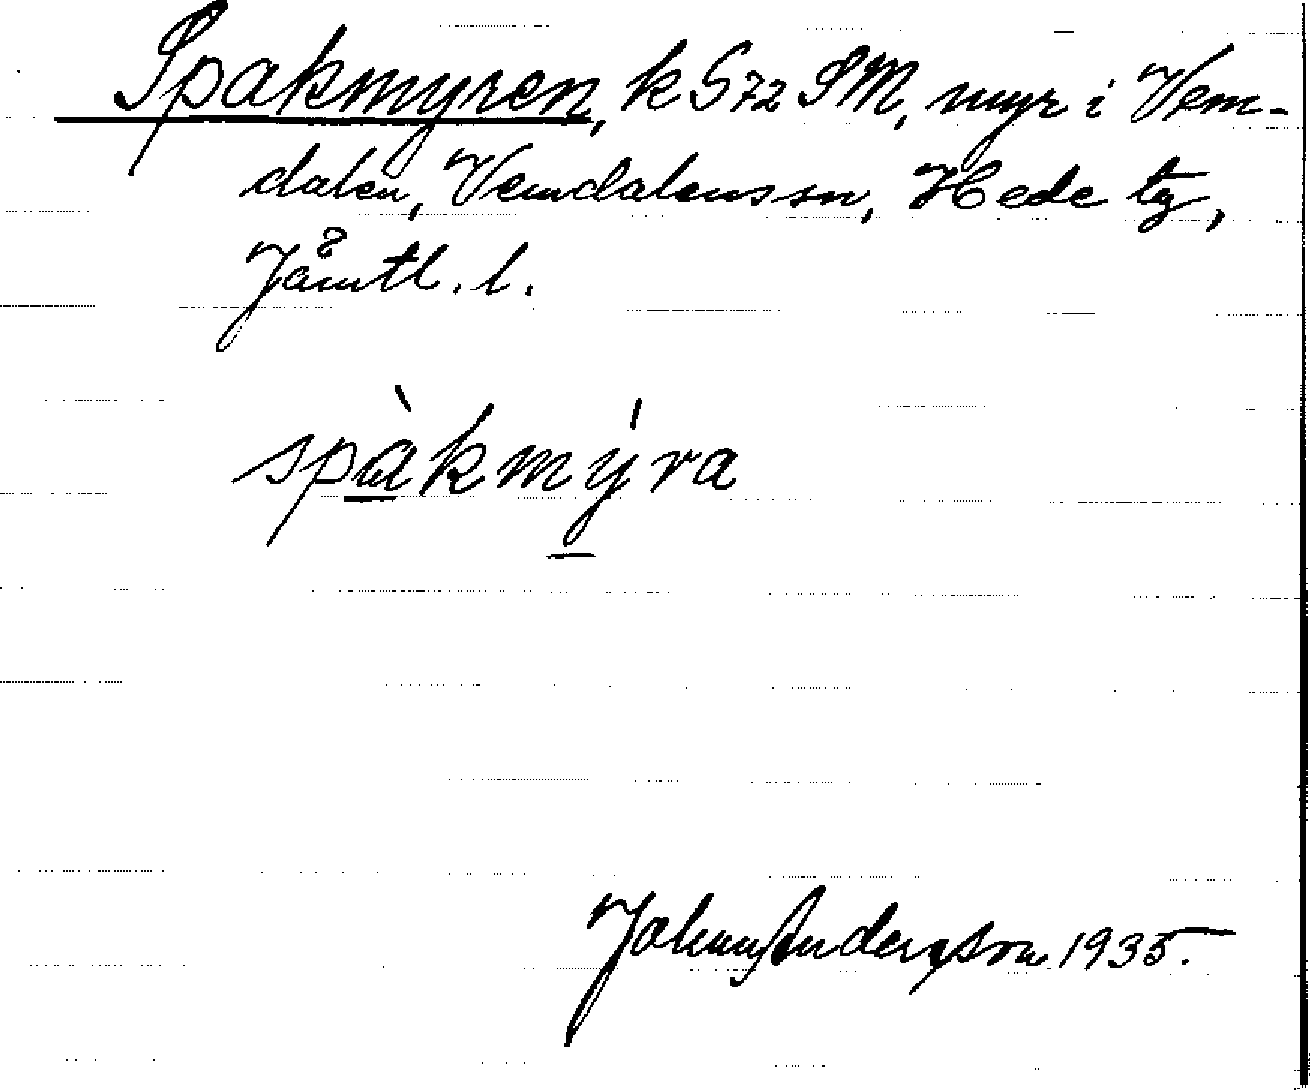 Spakmyren, k S72 SM, myr i Vem-
dalen, Vemdalens sn, Hede tg,
Jämtl. l.
spàkmýra
Johnny Andersson 1935.